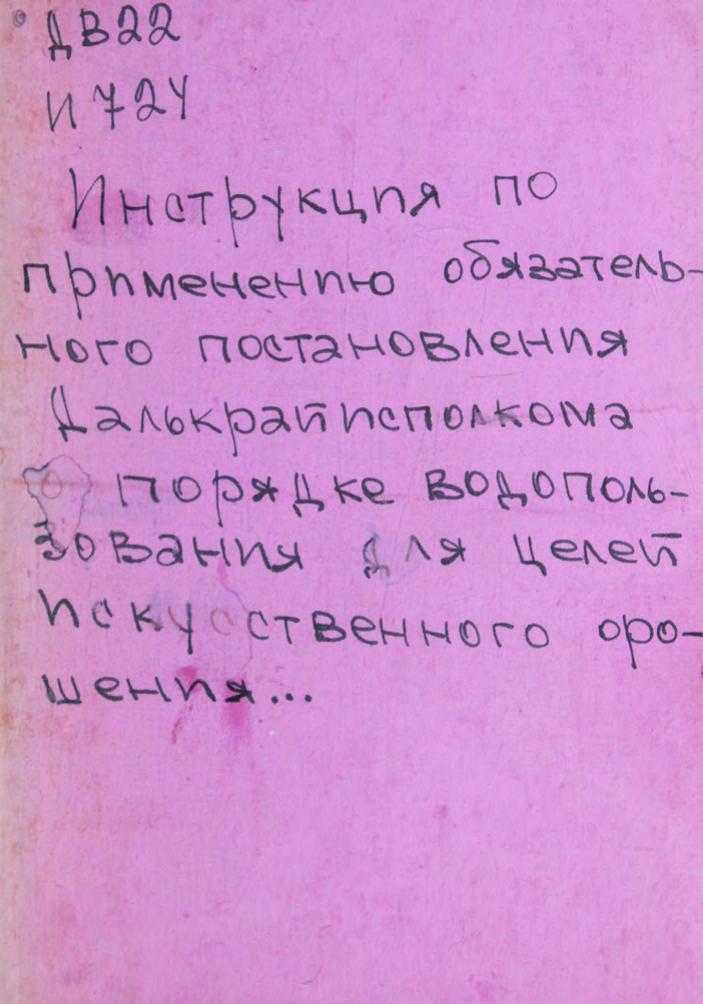 ДВ22
И724
Инструкция по
применению обязатель-
ного постановления
Далькрайисполкома
о порядке водополь-
зования для целей
искусственного оро-
шения...